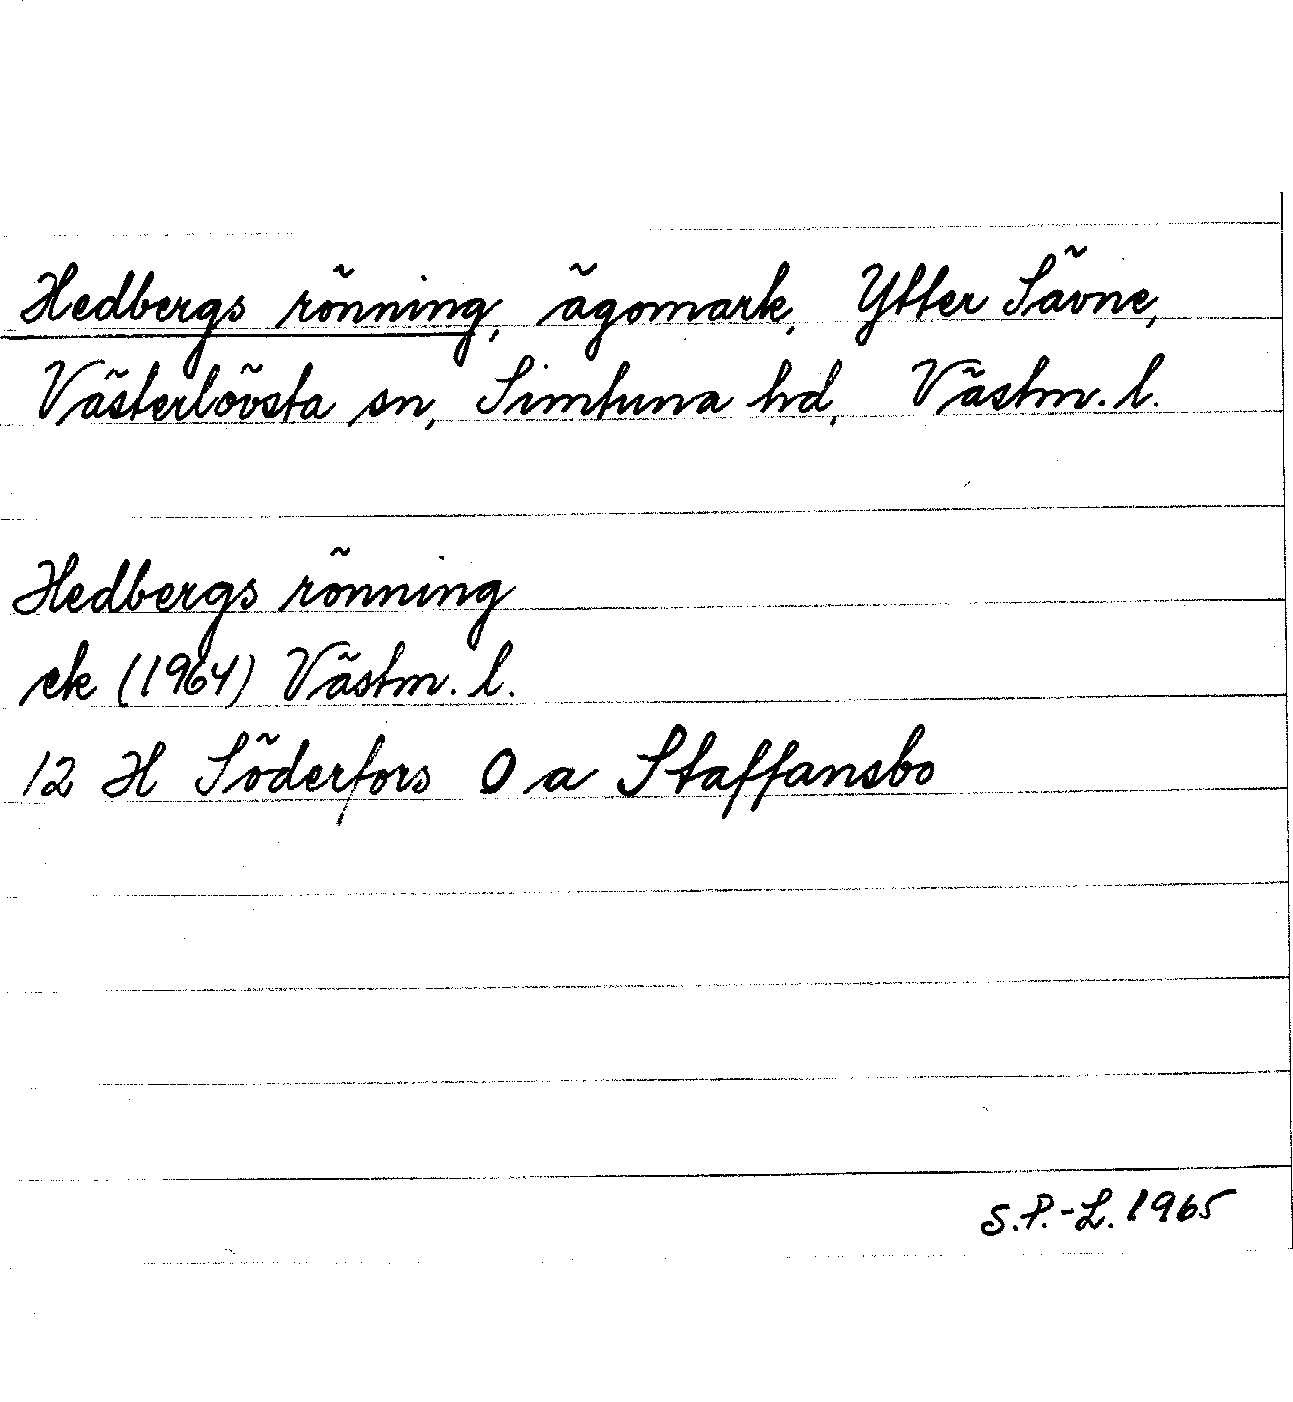 Hedbergs rönning, ägomark, Ytter Sävne,
Västerlövsta sn, Simtuna hd, Västm. l.
Hedbergs rönning
ek (1964) Västm. l.
12 H Söderfors 0 a Staffansbo
S.P.-L. 1965